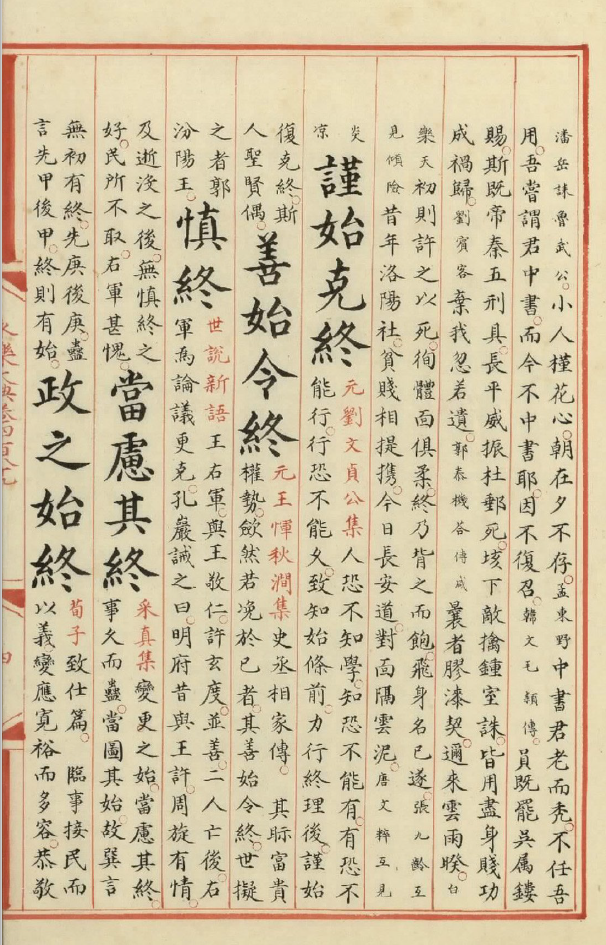 潘岳誄魯武公。小人槿花心。朝在夕不存。孟東野中書君老而禿。不任吾
用。吾嘗謂君中書。而今不中書耶。因不復召。韓文毛穎傳。員既罷吳属鏤
賜。斯既帝秦五刑具。長平威振杜郵死。垓下敵擒鍾室誅。皆用盡身賤功
成禍歸。劉賓客棄我忽若遺。郭泰機答傅咸曩者膠漆契。邇來雲雨睽。白
樂天初則許之以死。徇體面俱柔。終乃背之而飽飛。身名已遂。張九齡互
見傾險昔年洛陽社。貧賤相提攜。今日長安道。對面隔雲泥。唐文粹互見
炎
涼
謹始克終
元劉文貞公集人恐不知學。知恐不能有。有恐不
能行。行恐不能久。致知始條前。力行終理後。謹始
復克終。斯
人聖賢偶。
善始令終
元王惲秋澗集史丞相家傳。其眎富貴
權勢。歛然若凂於已者。其善始令終。世擬
之者郭
汾陽王。
慎終
世說新語王右軍。與王敬仁。許玄度。並善。二人亡後。右
軍為論議更克。孔巖誡之曰。明府昔與王許。周旋有情
及逝没之後。無慎終之
好。民所不取。右軍甚愧。
當慮其終
采真集變更之始。當慮其終。
事久而蠱。當圖其始。故巽言
無初有終。先庚後庚。蠱
言先甲後甲。終則有始。
政之始終
荀子致仕篇。臨事接民而
以義變應。寬裕而多容。恭敬